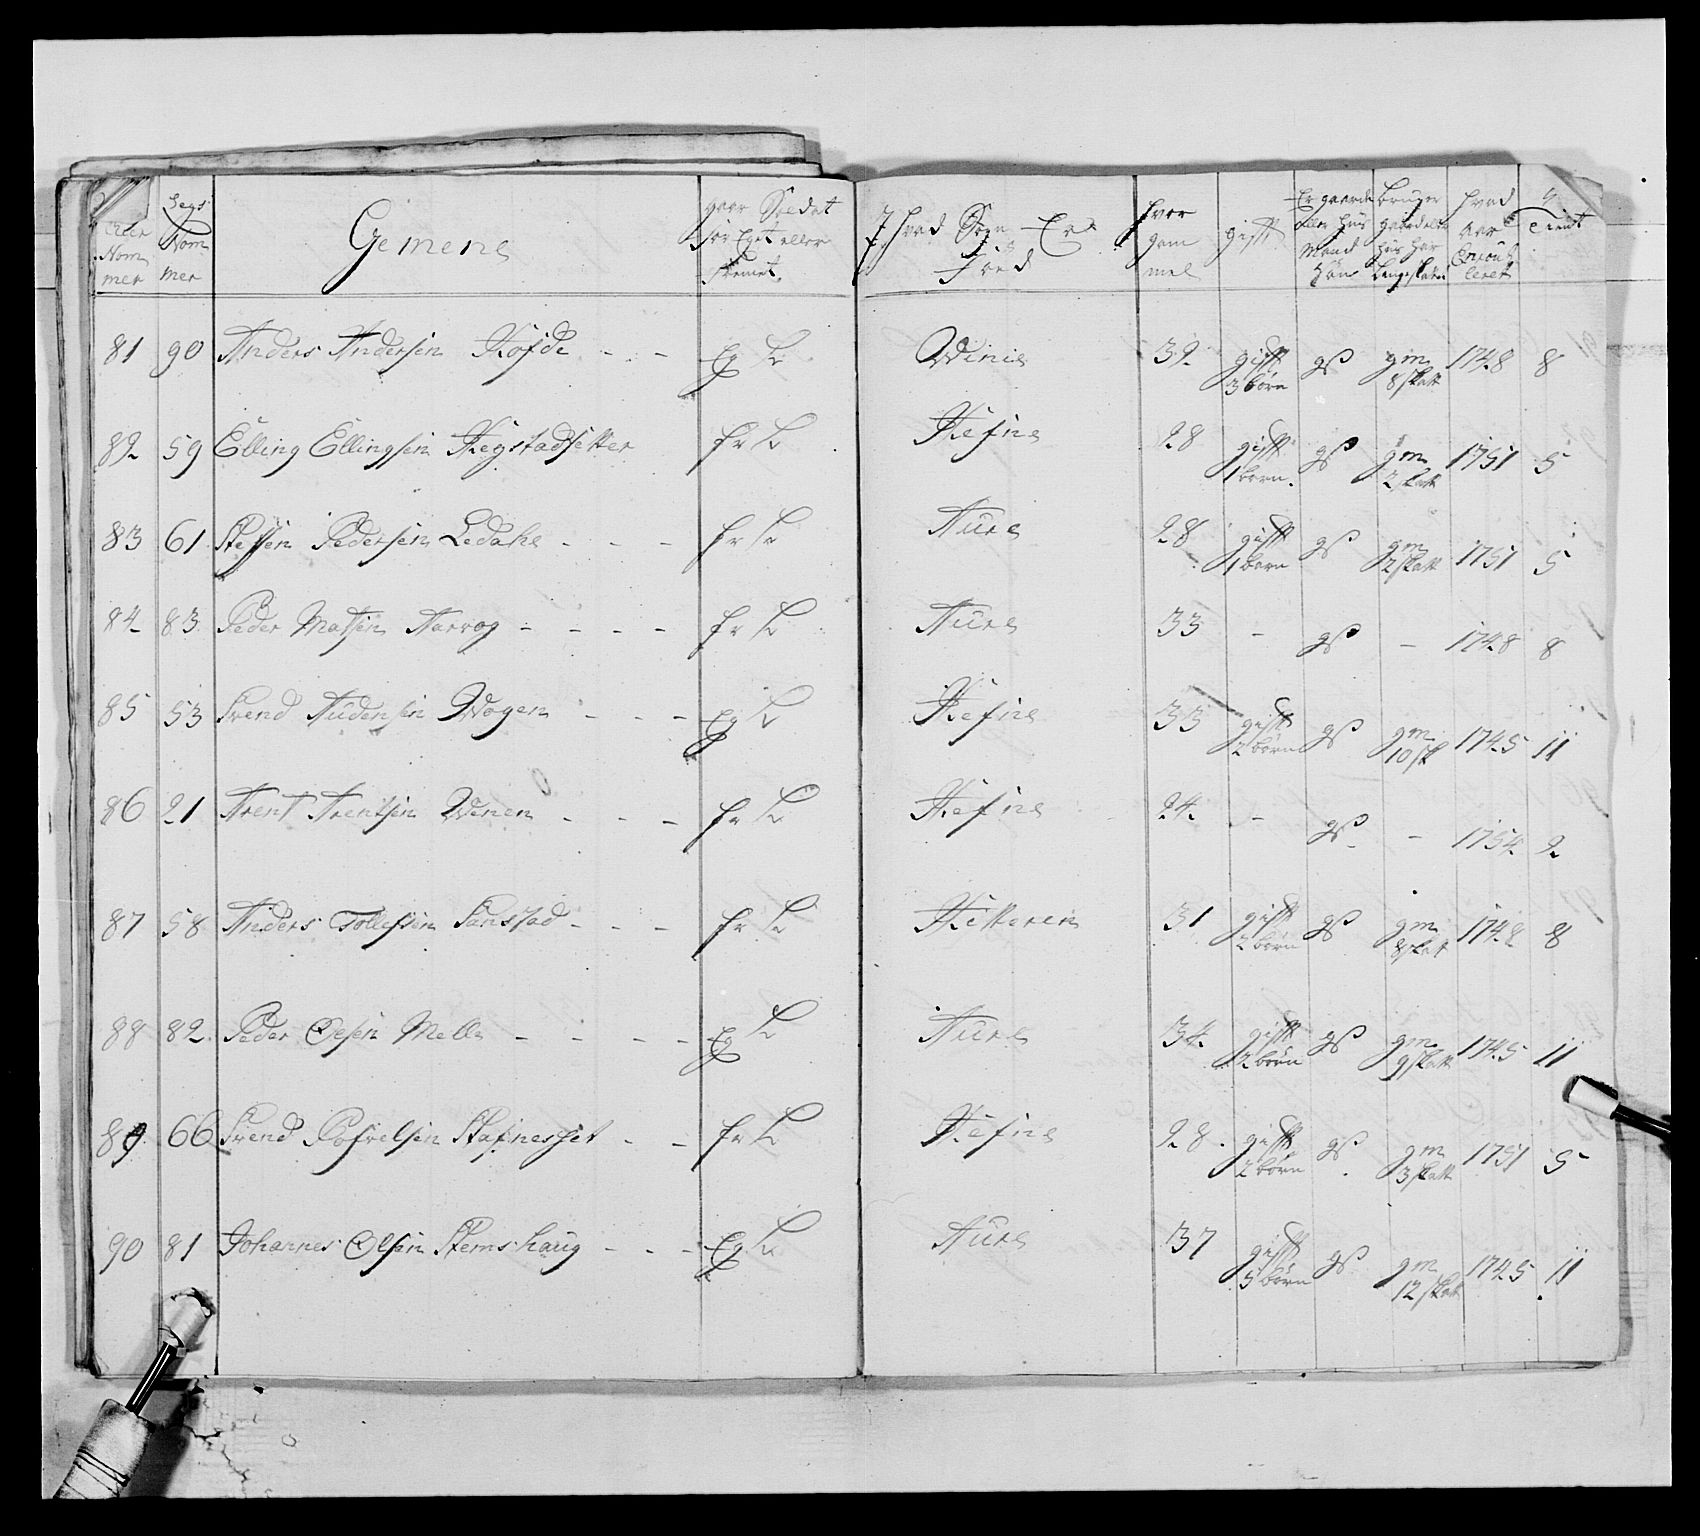 Nom
mer
Legs
Nom
mer
Gemene
gaar Soldat
for Eget eller
fremet
J hvad Sogn Er
Fød
hvor
gam
mel
gift
Er gaarde
eller hus
Mand
Søn
bruger
gaard eller
hus har
hvad
aar
Enroul
leret
tient
81 90 Anders Andersen Høfde - - - Eg L Winie 39 gifft 3 børn gS gm 8 skatt 1748 8
82 59 Elling Ellingsen Hegstadsetter fr L Hefne 28 gifft 1 barn gS gm 2 skatt 1751 5
83 61 Steffen Pedersen Ledahl - - - fr L Aure 28 gifft 1 barn gS gm 2 skatt 1751 5
84 83 Peder Matsen Aarvog - - - - fr L Aure 33 - gS - 1748 8
85 53 Svend Audensen Wogen - - - Eg L Hefne 33 gifft 2 børn gS gm 10 sk 1745 11
86 21 Arent Arentsen Wenen - - - fr L Hefne 24 - gS - 1754 2
87 58 Anders Tollefsen Sanstad - - - fr L Hitteren 31 gifft 2 børn gS gm 8 skatt 1748 8
88 82 Peder Olsen Melle - - - - Eg L Aure 34 gifft 2 børn gS gm 9 skatt 1745 11
89 66 Svend Pofvelsen Stafnesset - - fr L Hefne 28 gifft 2 børn gS gm 3 skatt 1751 5
90 81 Johannes Olsen Stemshaug - - - Eg L Aure 37 gifft 5 børn gS gm 12 skatt 1745 11